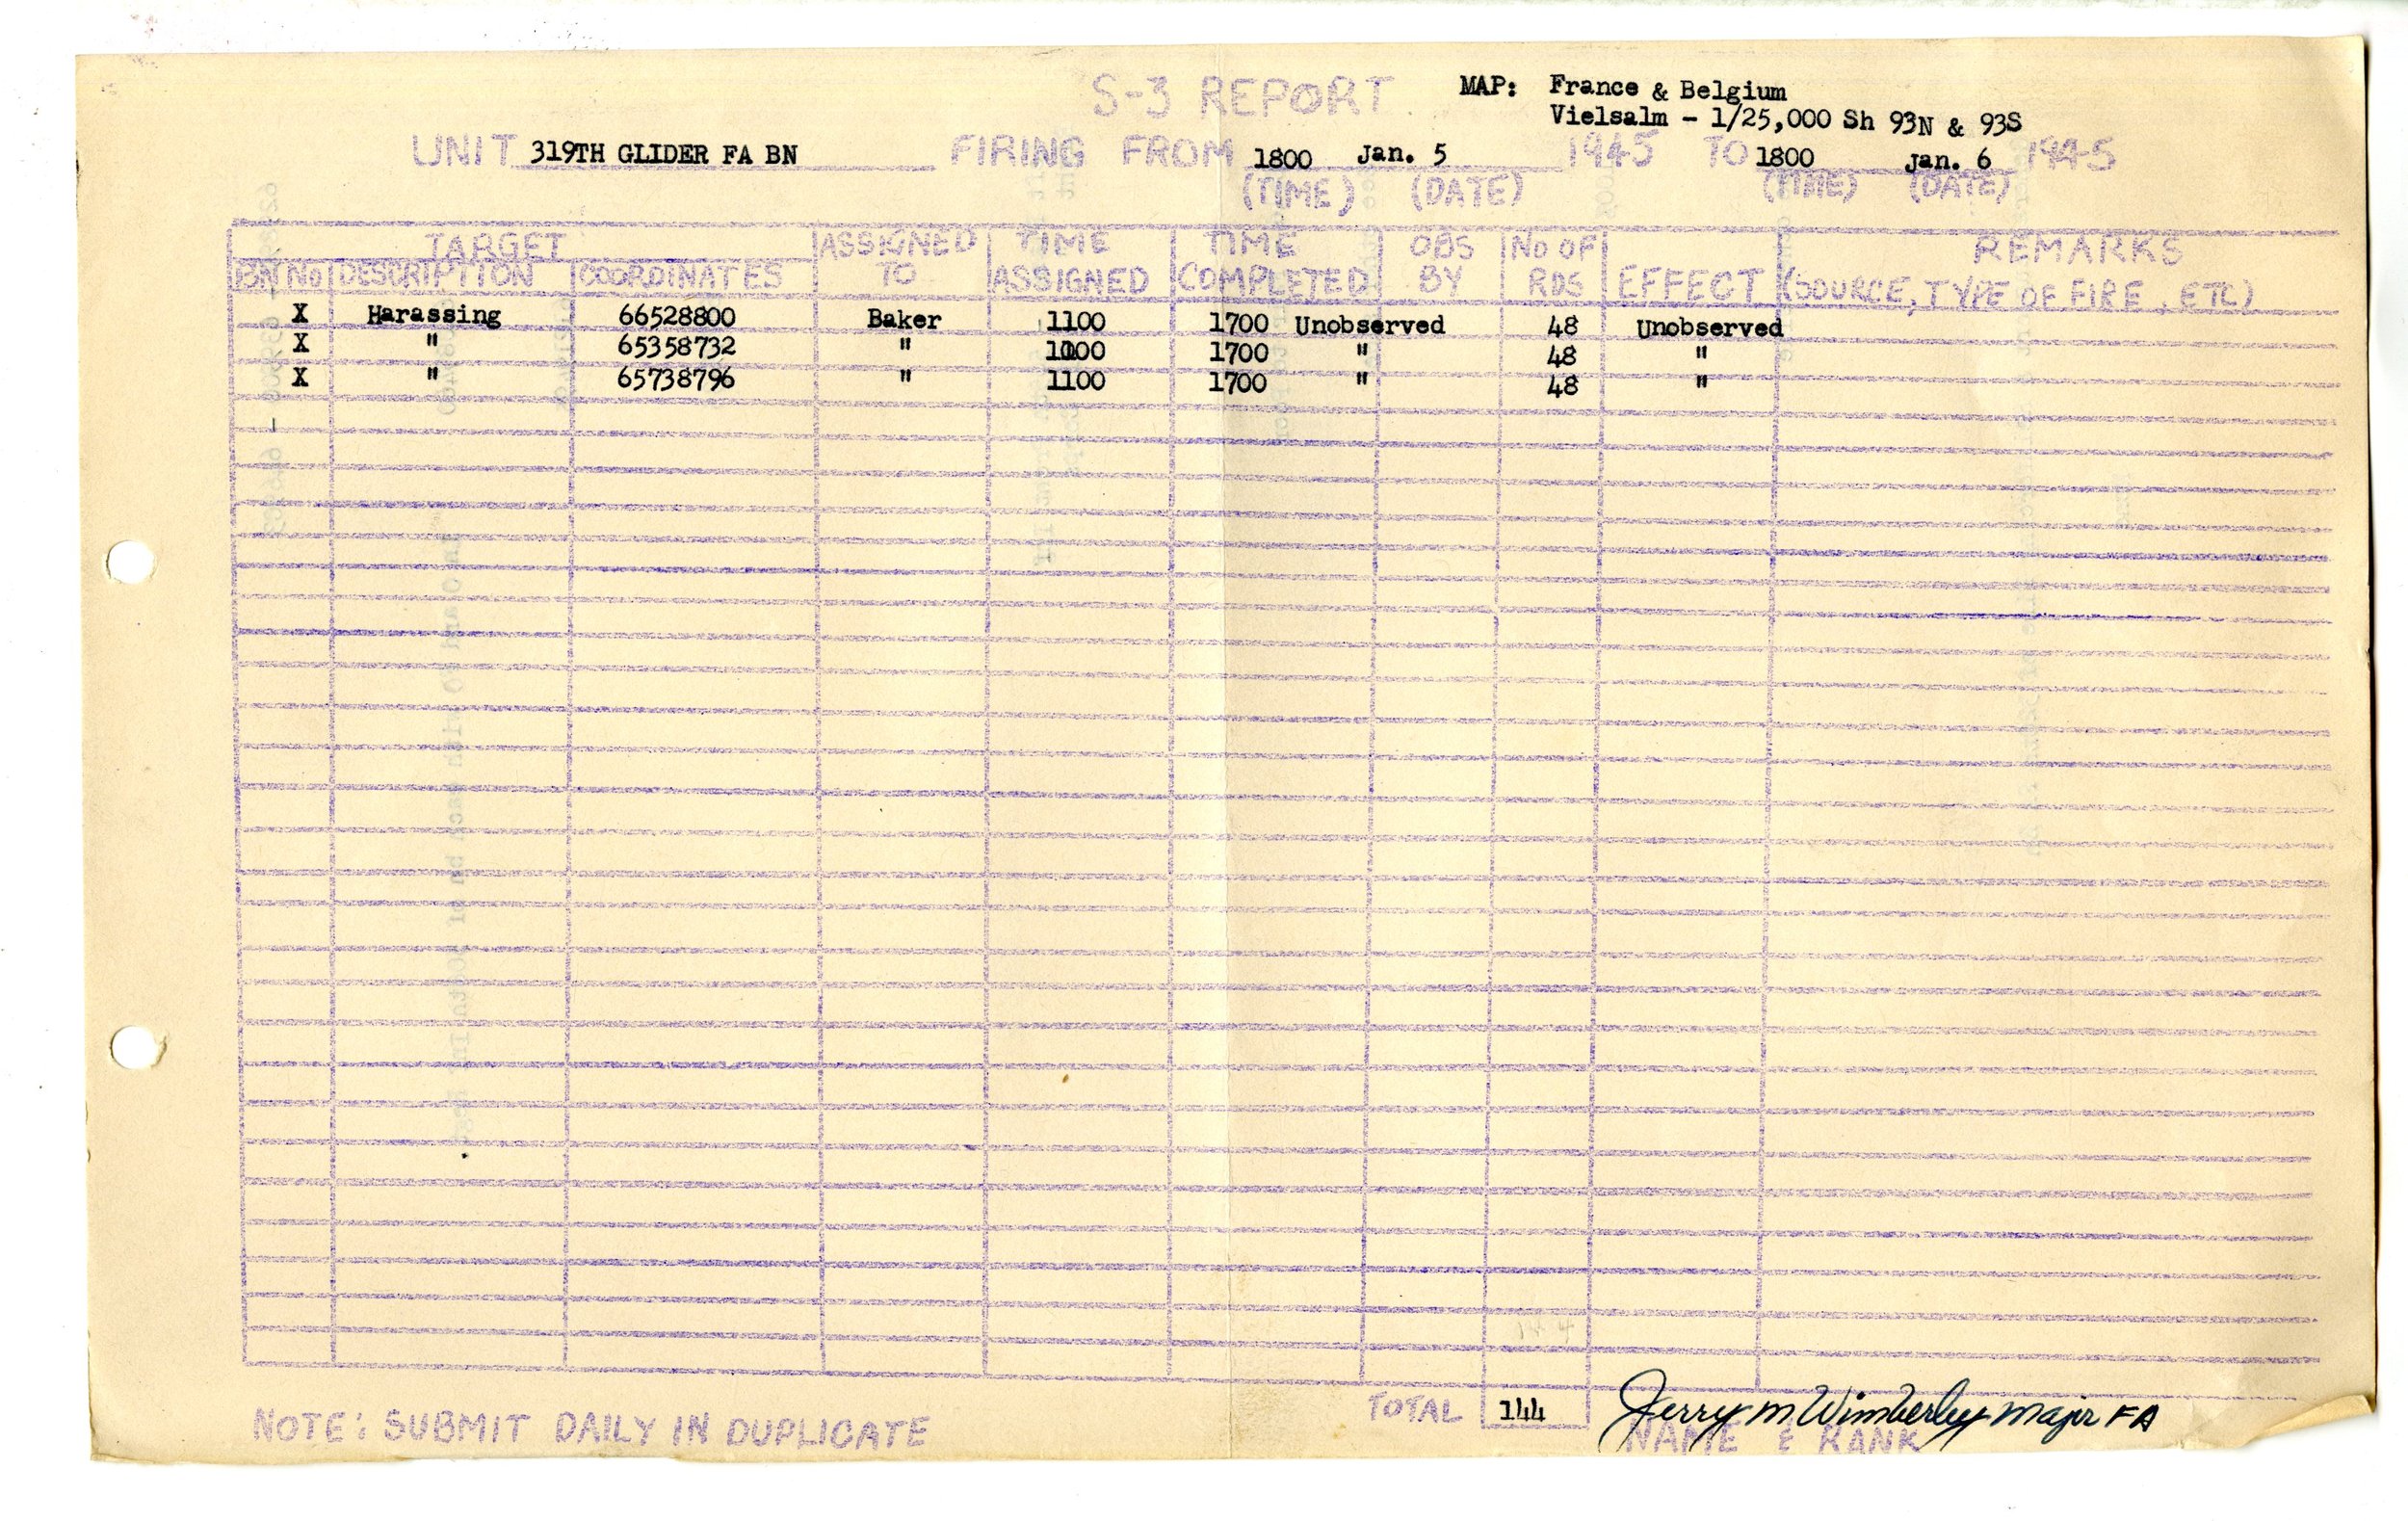 S-3 REPORT
MAP: France & Belgium
Vielsalm - 1/25,000 Sh 93N & 93S
UNIT 319TH GLIDER FA BN FIRING FROM 1800 Jan. 5 1945 TO 1800 Jan. 6 1945
(TIME) (DATE) (TIME) (DATE)
TARGET ASSIGNED TIME TIME OBS NO OF REMARKS
BN NO DESCRIPTION COORDINATES TO ASSIGNED COMPLETED BY RDS EFFECT (SOURCE, TYPE OF FIRE, ETC)
X Harassing 66528800 Baker 1100 1700 Unobserved 48 Unobserved
X " 65358732 " 1100 1700 " 48 "
X " 65738796 " 1100 1700 " 48 "
144
TOTAL 144 Jerry M Wimberley Major FA
NOTE: SUBMIT DAILY IN DUPLICATE NAME & RANK